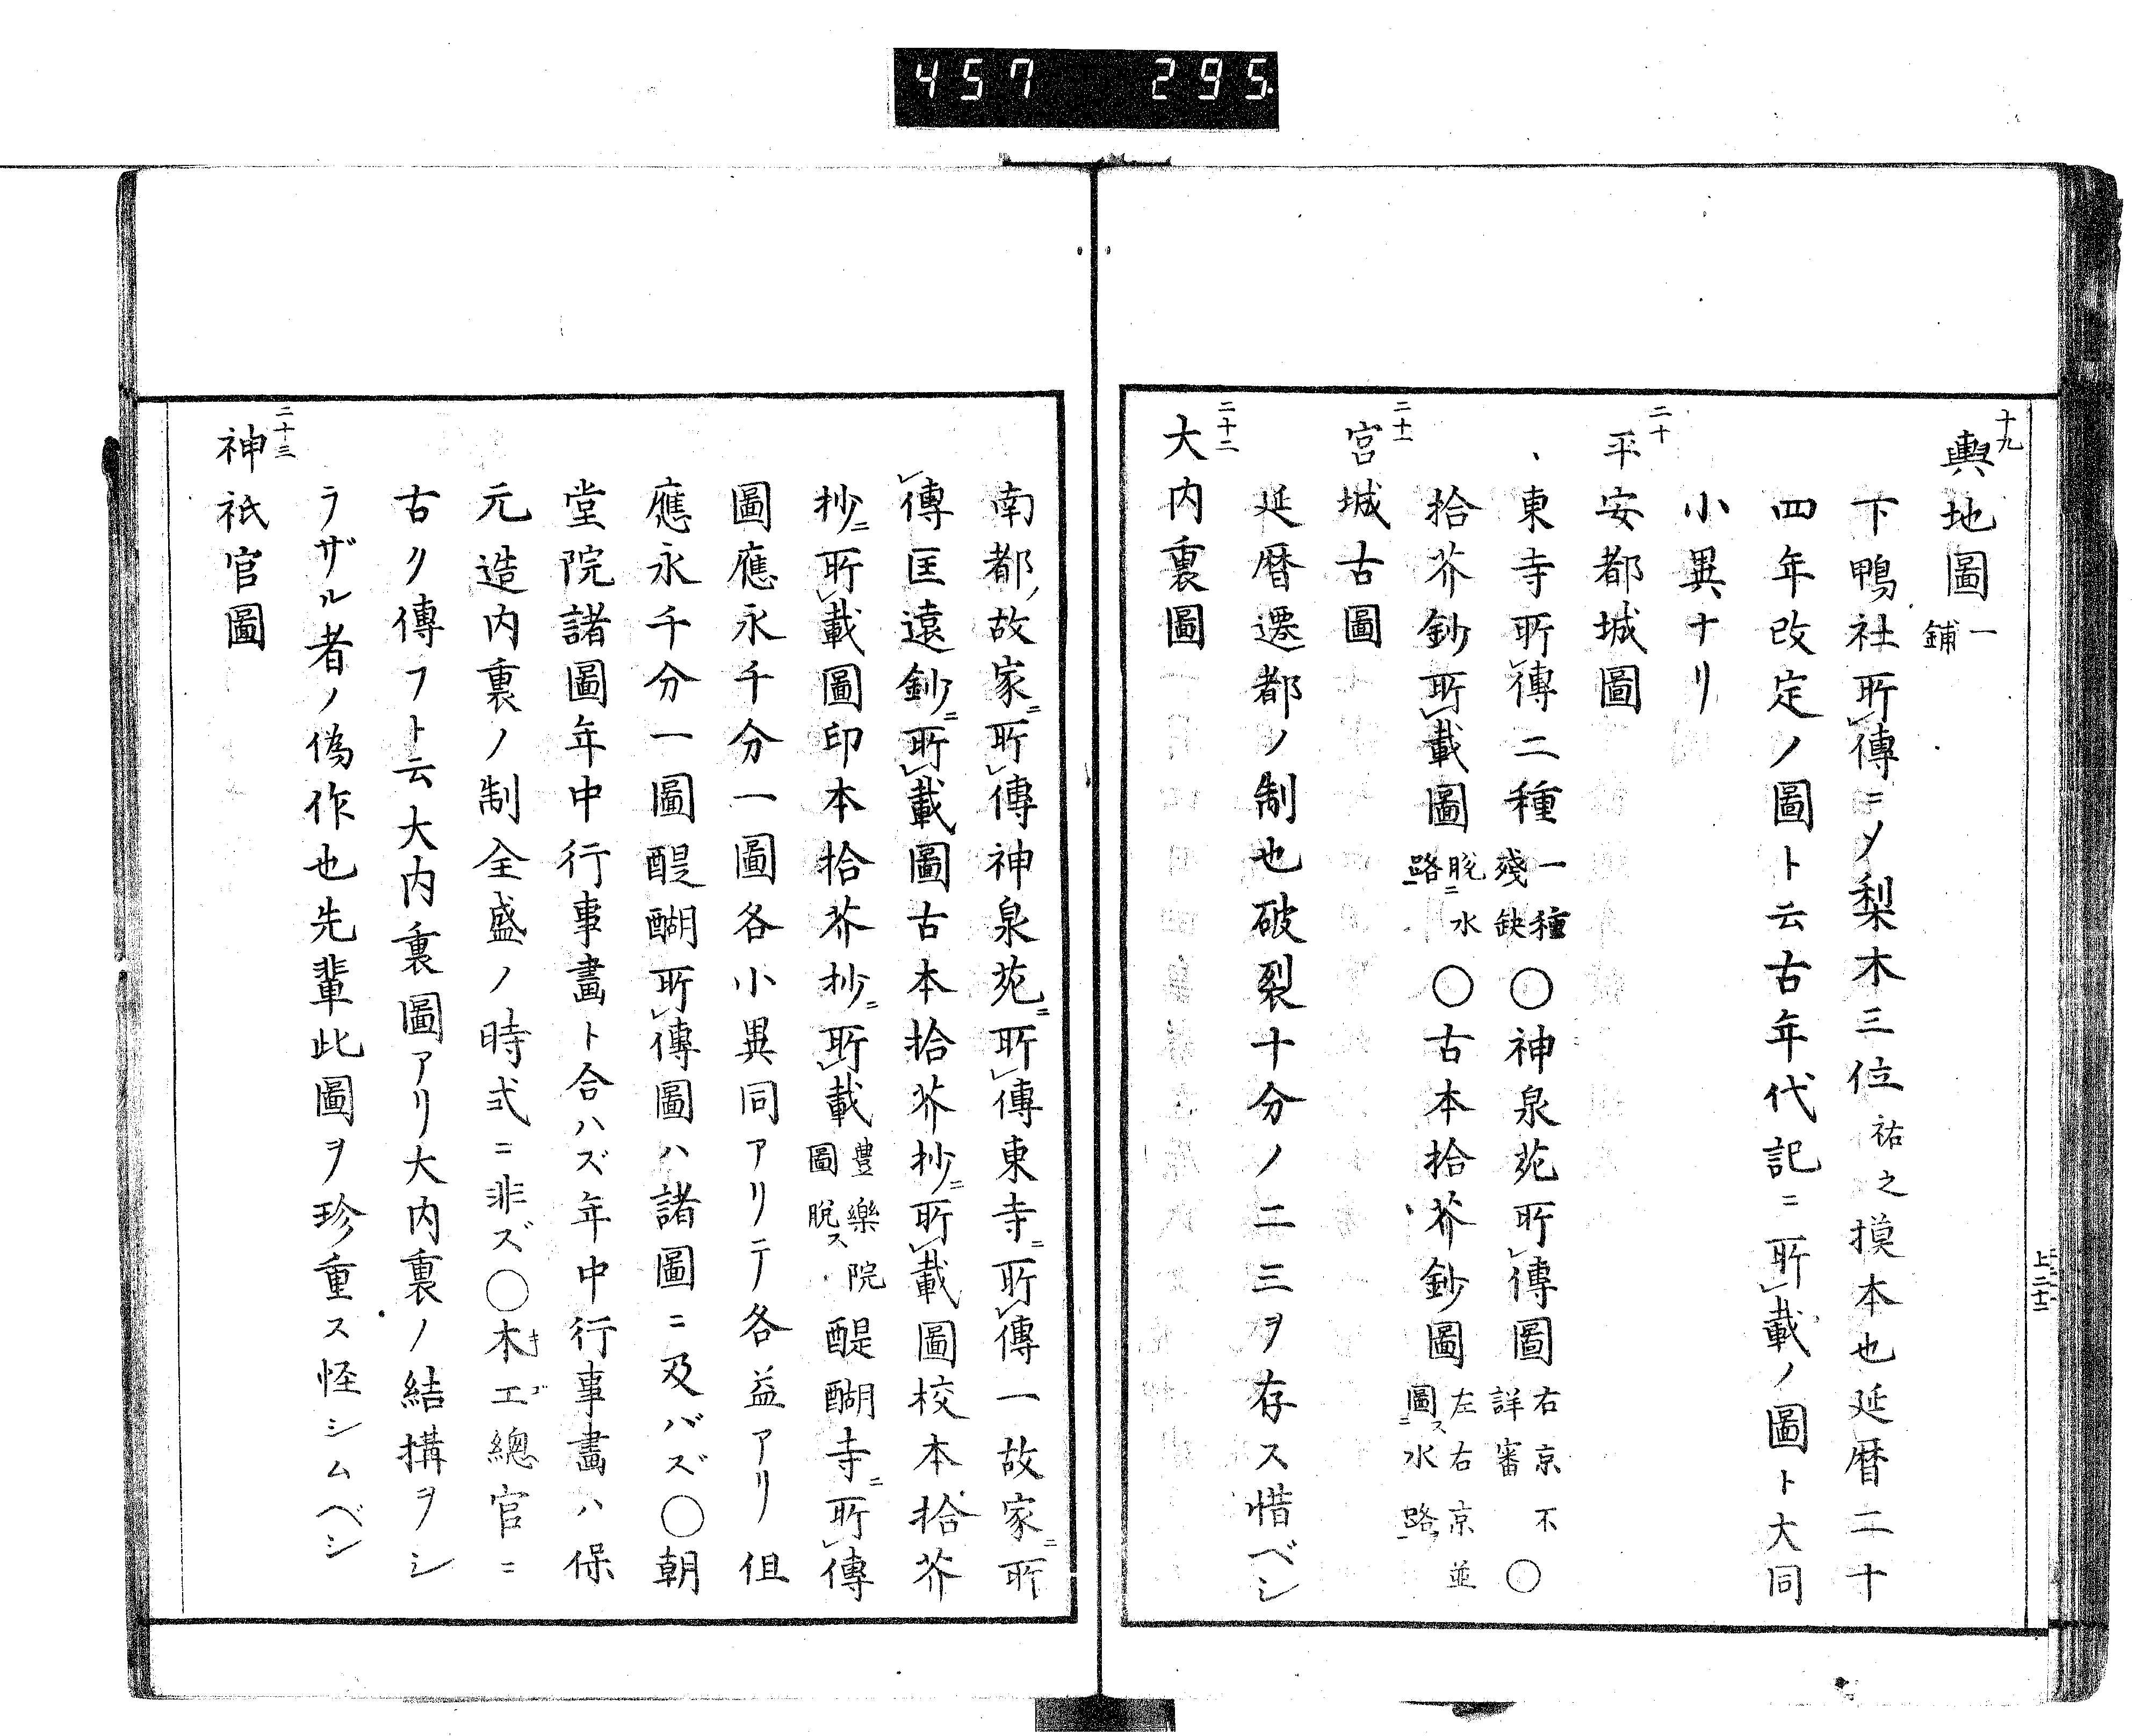 457 295
上二十二
十九
輿地圖 一鋪
下鴨社所傳ニメ梨木三位祐之摸本也延暦二十
四年改定ノ圖ト云古年代記ニ所載ノ圖ト大同
小異ナリ
二十
平安都城圖
東寺所傳二種 一種殘缺 ○神泉苑所傳圖 右京不詳審 ○
拾芥鈔所載圖 脱水路 ○古本拾芥鈔圖 左右京並圖水路
二十一
宮城古圖
延暦遷都ノ制也破裂十分ノ二三ヲ存ス惜ベシ
二十二
大内裏圖
南都ノ故家ニ所傳神泉苑ニ所傳東寺ニ所傳一故家ニ所
傳匡遠鈔ニ所載圖古本拾芥抄ニ所載圖校本拾芥
抄ニ所載圖印本拾芥抄ニ所載 豊樂院圖脱ス 醍醐寺ニ所傳
圖應永千分一圖各小異同アリテ各益アリ但
應永千分一圖醍醐所傳圖ハ諸圖ニ及バズ○朝
堂院諸圖年中行事畫ト合ハズ年中行事畫ハ保
元造内裏ノ制全盛ノ時式ニ非ズ○木工總官ニ
古ク傳フト云大内裏圖アリ大内裏ノ結搆ヲシ
ラザル者ノ偽作也先輩此圖ヲ珍重ス怪シムベシ
二十三
神祇官圖